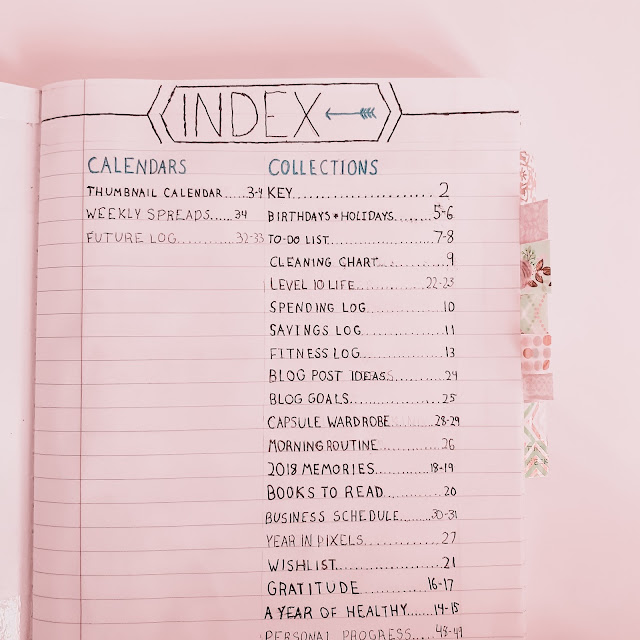 INDEX
CALENDARS
THUMBNAIL CALENDAR......3-4
WEEKLY SPREADS......34
FUTURE LOG............32-33
COLLECTIONS
KEY........................ 2
BIRTHDAYS + HOLIDAYS.......5-6
TO-DO LIST...................7-8
CLEANING CHART............9
LEVEL 10 LIFE..............22-23
SPENDING LOG..............10
SAVINGS LOG................11
FITNESS LOG................13
BLOG POST IDEAS..........24
BLOG GOALS.................25
CAPSULE WARDROBE........28-29
MORNING ROUTINE............26
2018 MEMORIES...........18-19
BOOKS TO READ............20
BUSINESS SCHEDULE.......30-31
YEAR IN PIXELS..............27
WISHLIST...................21
GRATITUDE.............16-17
A YEAR OF HEALTHY.....14-15
PERSONAL PROGRESS.....48-49